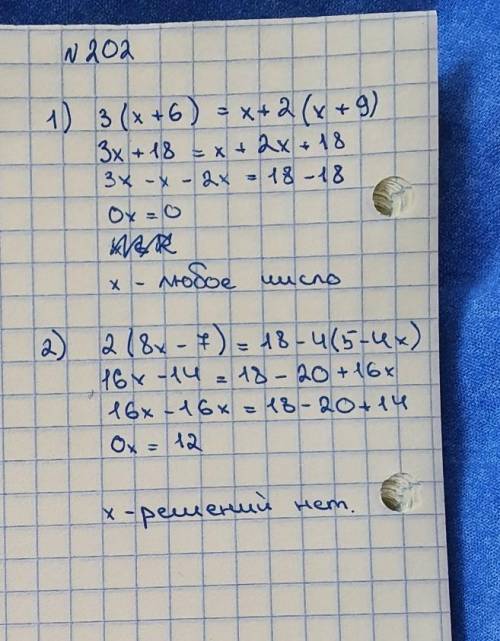 №202
1) 3(x+6) = x+2(x+9)
3x+18 = x+2x+18
3x-x-2x = 18-18
0x=0
x - любое число
2) 2(8x-7)=18-4(5-4x)
16x-14=18-20+16x
16x-16x=18-20+14
0x=12
x-решений нет.